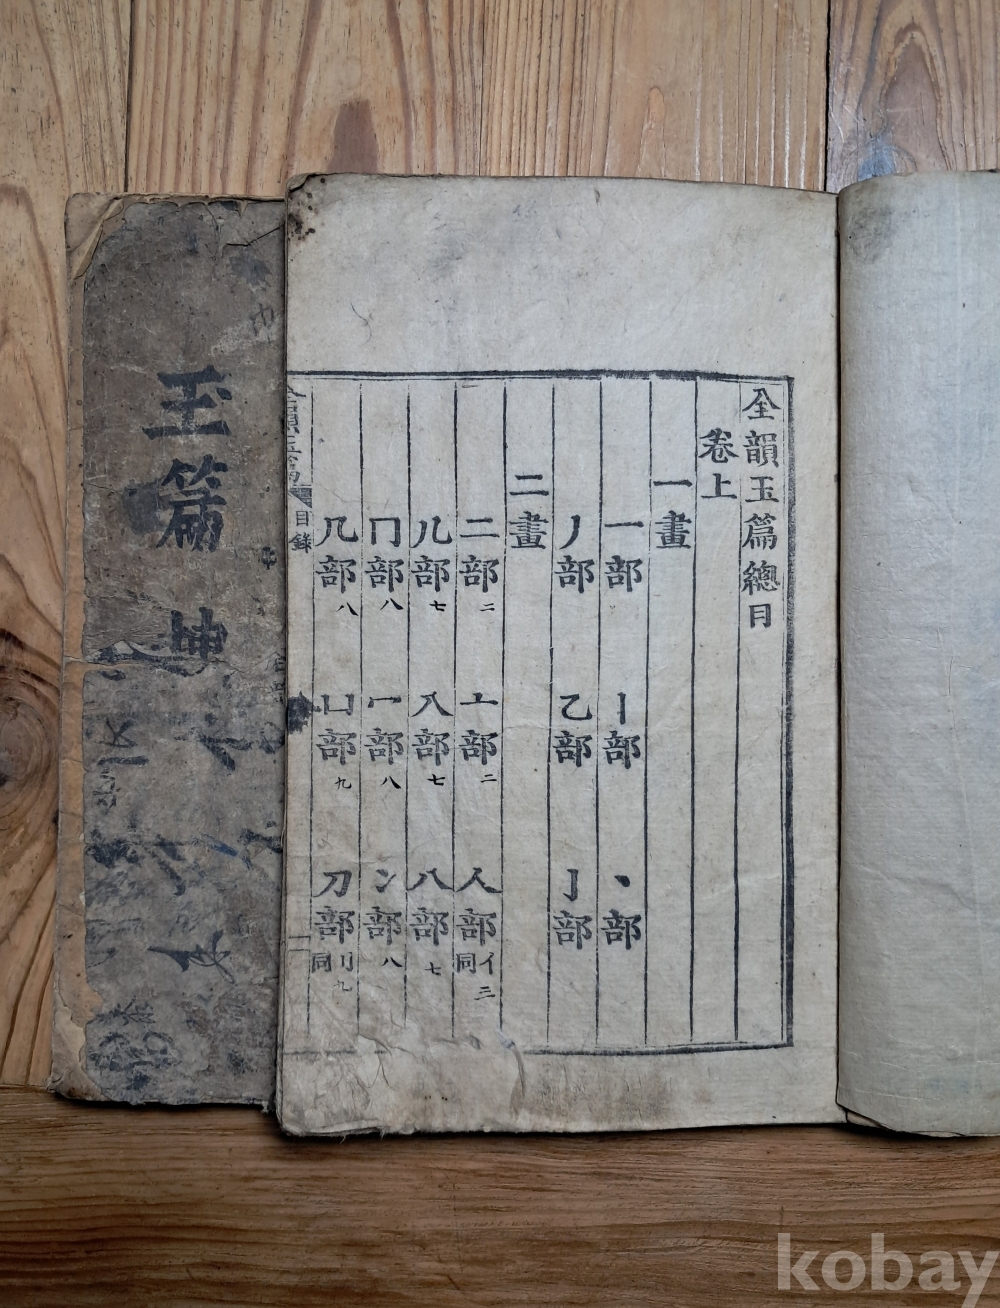 全韻玉篇總目
卷上
一畫
一部 丨部 丶部
丿部 乙部 亅部
二畫
二部二 亠部二 人部亻同三
儿部七 入部七 八部七
冂部八 冖部八 冫部八
几部八 凵部九 刀部刂同九
全韻玉篇 目錄 一
玉篇 坤
kobay